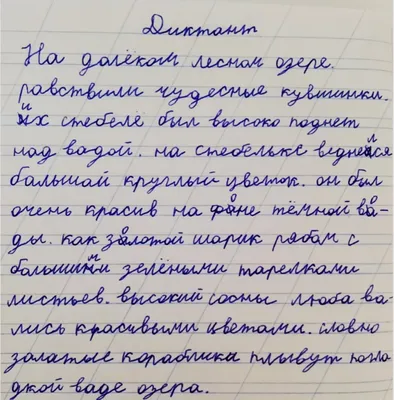 Диктант
На далёком лесном озере.
равствили чудесные кувшинки.
их стебелё был высоко поднет
над вадой. на стебельке веднелися
балышай круглый цветок. он был
очень красив на фоне тёмной во-
ды. как золотой шарик рябам с
балышими зелёными тарелками
листьев. высокий сосны люба ва-
лись красивыми цветами. словно
залатые кораблики плывут погла
дкой ваде озера.